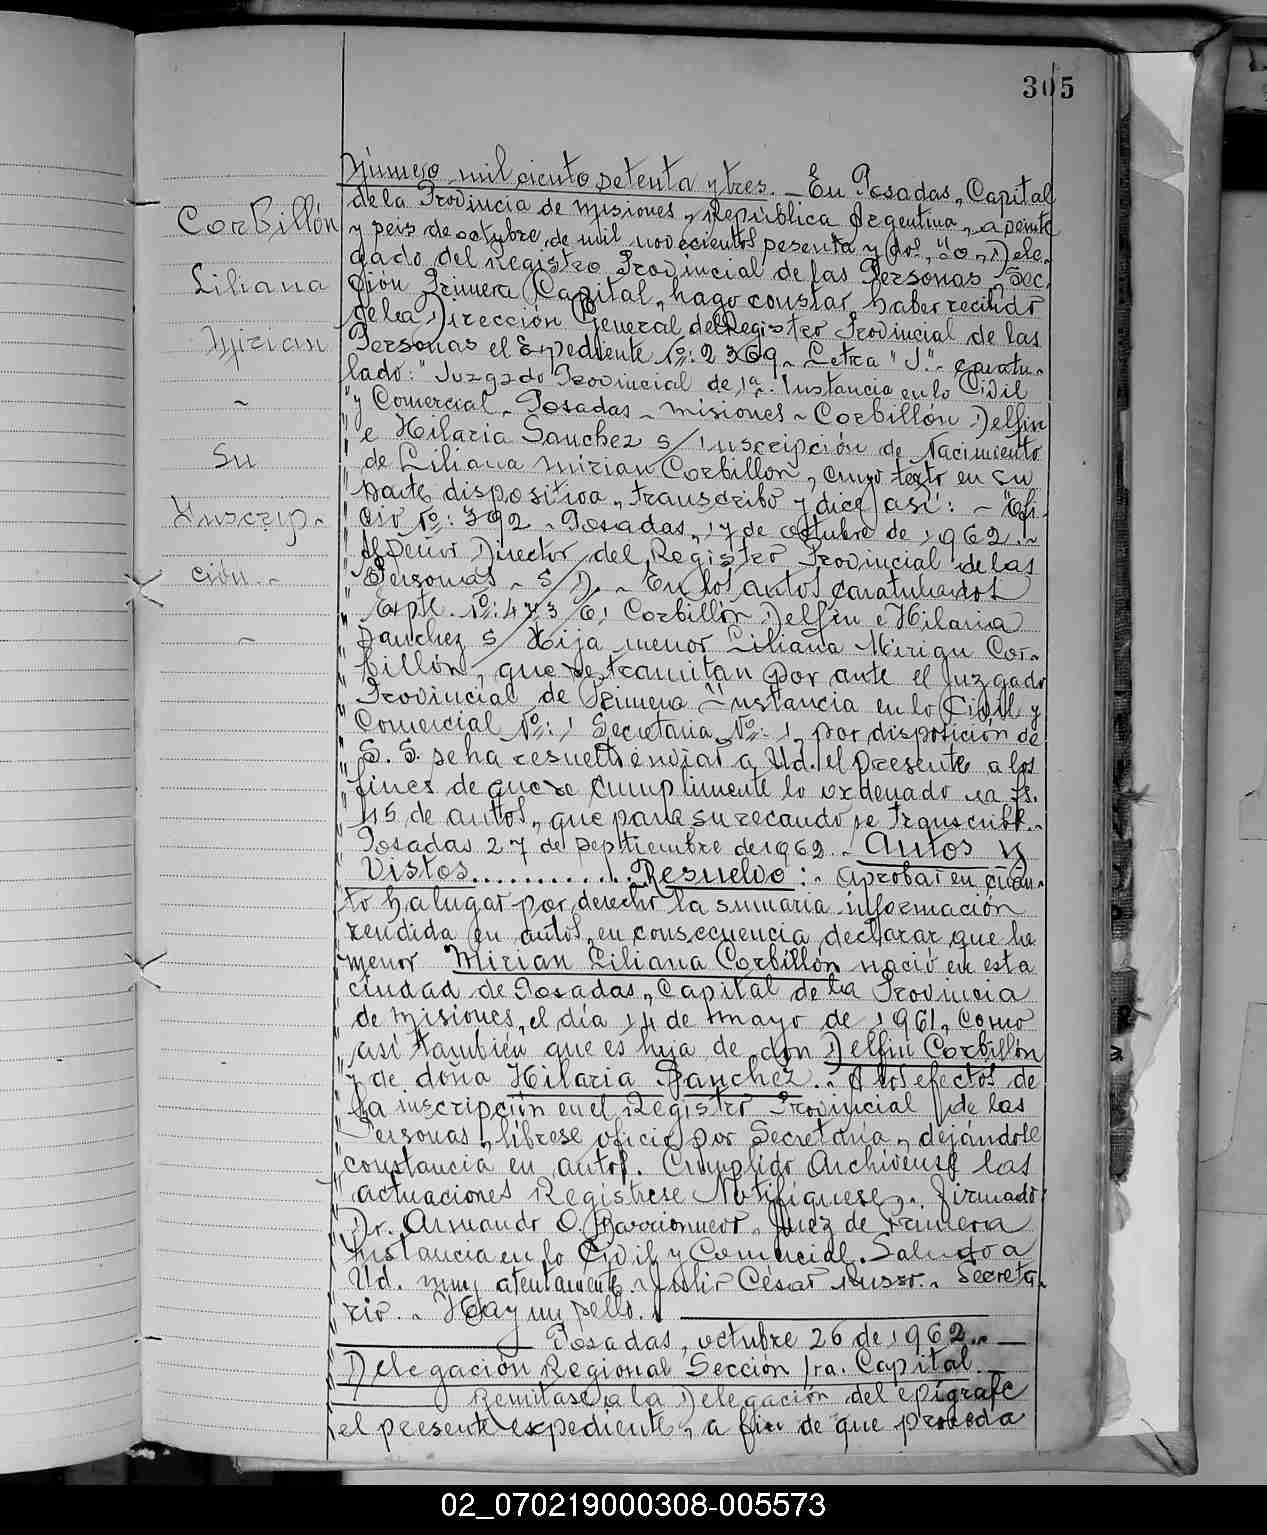 305
Corbillón
Liliana
Mirian
~
Su
Inscrip-
ción.-
~
Número mil ciento setenta y tres. - En Posadas, Capital
de la Provincia de Misiones, República Argentina, a veinte
y seis de octubre de mil novecientos sesenta y dos, Dele-
gado del Registro Provincial de las Personas, Sec-
ción Primera Capital, hago constar haber recibido
de la Dirección General del Registro Provincial de las
Personas el Expediente Nº: 2369 - Letra "J" - caratu-
lado: "Juzgado Provincial de 1ª Instancia en lo Civil
y Comercial - Posadas - Misiones - Corbillón Delfin
e Hilaria Sanchez s/ Inscripción de Nacimiento
de Liliana Mirian Corbillón, cuyo texto en su
parte dispositiva, transcribo y dice así: - "Ofi-
cio Nº: 392 - Posadas, 17 de octubre de 1962.-
Al Señor Director del Registro Provincial de las
Personas - S/D. - En los autos caratulados
Expte. Nº: 473/61 Corbillón Delfin e Hilaria
Sanchez s/ Hija menor Liliana Mirian Cor-
billón, que se tramitan por ante el Juzgado
Provincial de Primera Instancia en lo Civil y
Comercial Nº: 1 Secretaria Nº: 1, por disposición de
S. S. se ha resuelto enviar a Ud. el presente a los
fines de que se cumplimente lo ordenado a fs.
45 de autos, que para su recaudo se transcribe.-
Posadas 27 de septiembre de 1962.- Autos y
Vistos............Resuelvo: - aprobar en cuan-
to ha lugar por derecho la sumaria información
rendida en autos, en consecuencia declarar que la
menor Mirian Liliana Corbillón nació en esta
ciudad de Posadas, Capital de la Provincia
de Misiones, el día 14 de mayo de 1961, como
así también que es hija de don Delfin Corbillón
y de doña Hilaria Sanchez.- A los efectos de
la inscripción en el Registro Provincial de las
Personas, líbrese oficio por Secretaría, dejándose
constancia en autos. Cumplido Archívense las
actuaciones Regístrese Notifíquese.- firmado:
Dr. Armando O. Barrionuevo, Juez de Primera
Instancia en lo Civil y Comercial. Saludo a
Ud. muy atentamente. Julio César Russo.- Secreta-
rio.- Hay un sello.
Posadas, octubre 26 de 1962.-
Delegación Regional Sección 1ra. Capital.
Remítase a la Delegación del epígrafe
el presente expediente, a fin de que proceda
02_070219000308-005573